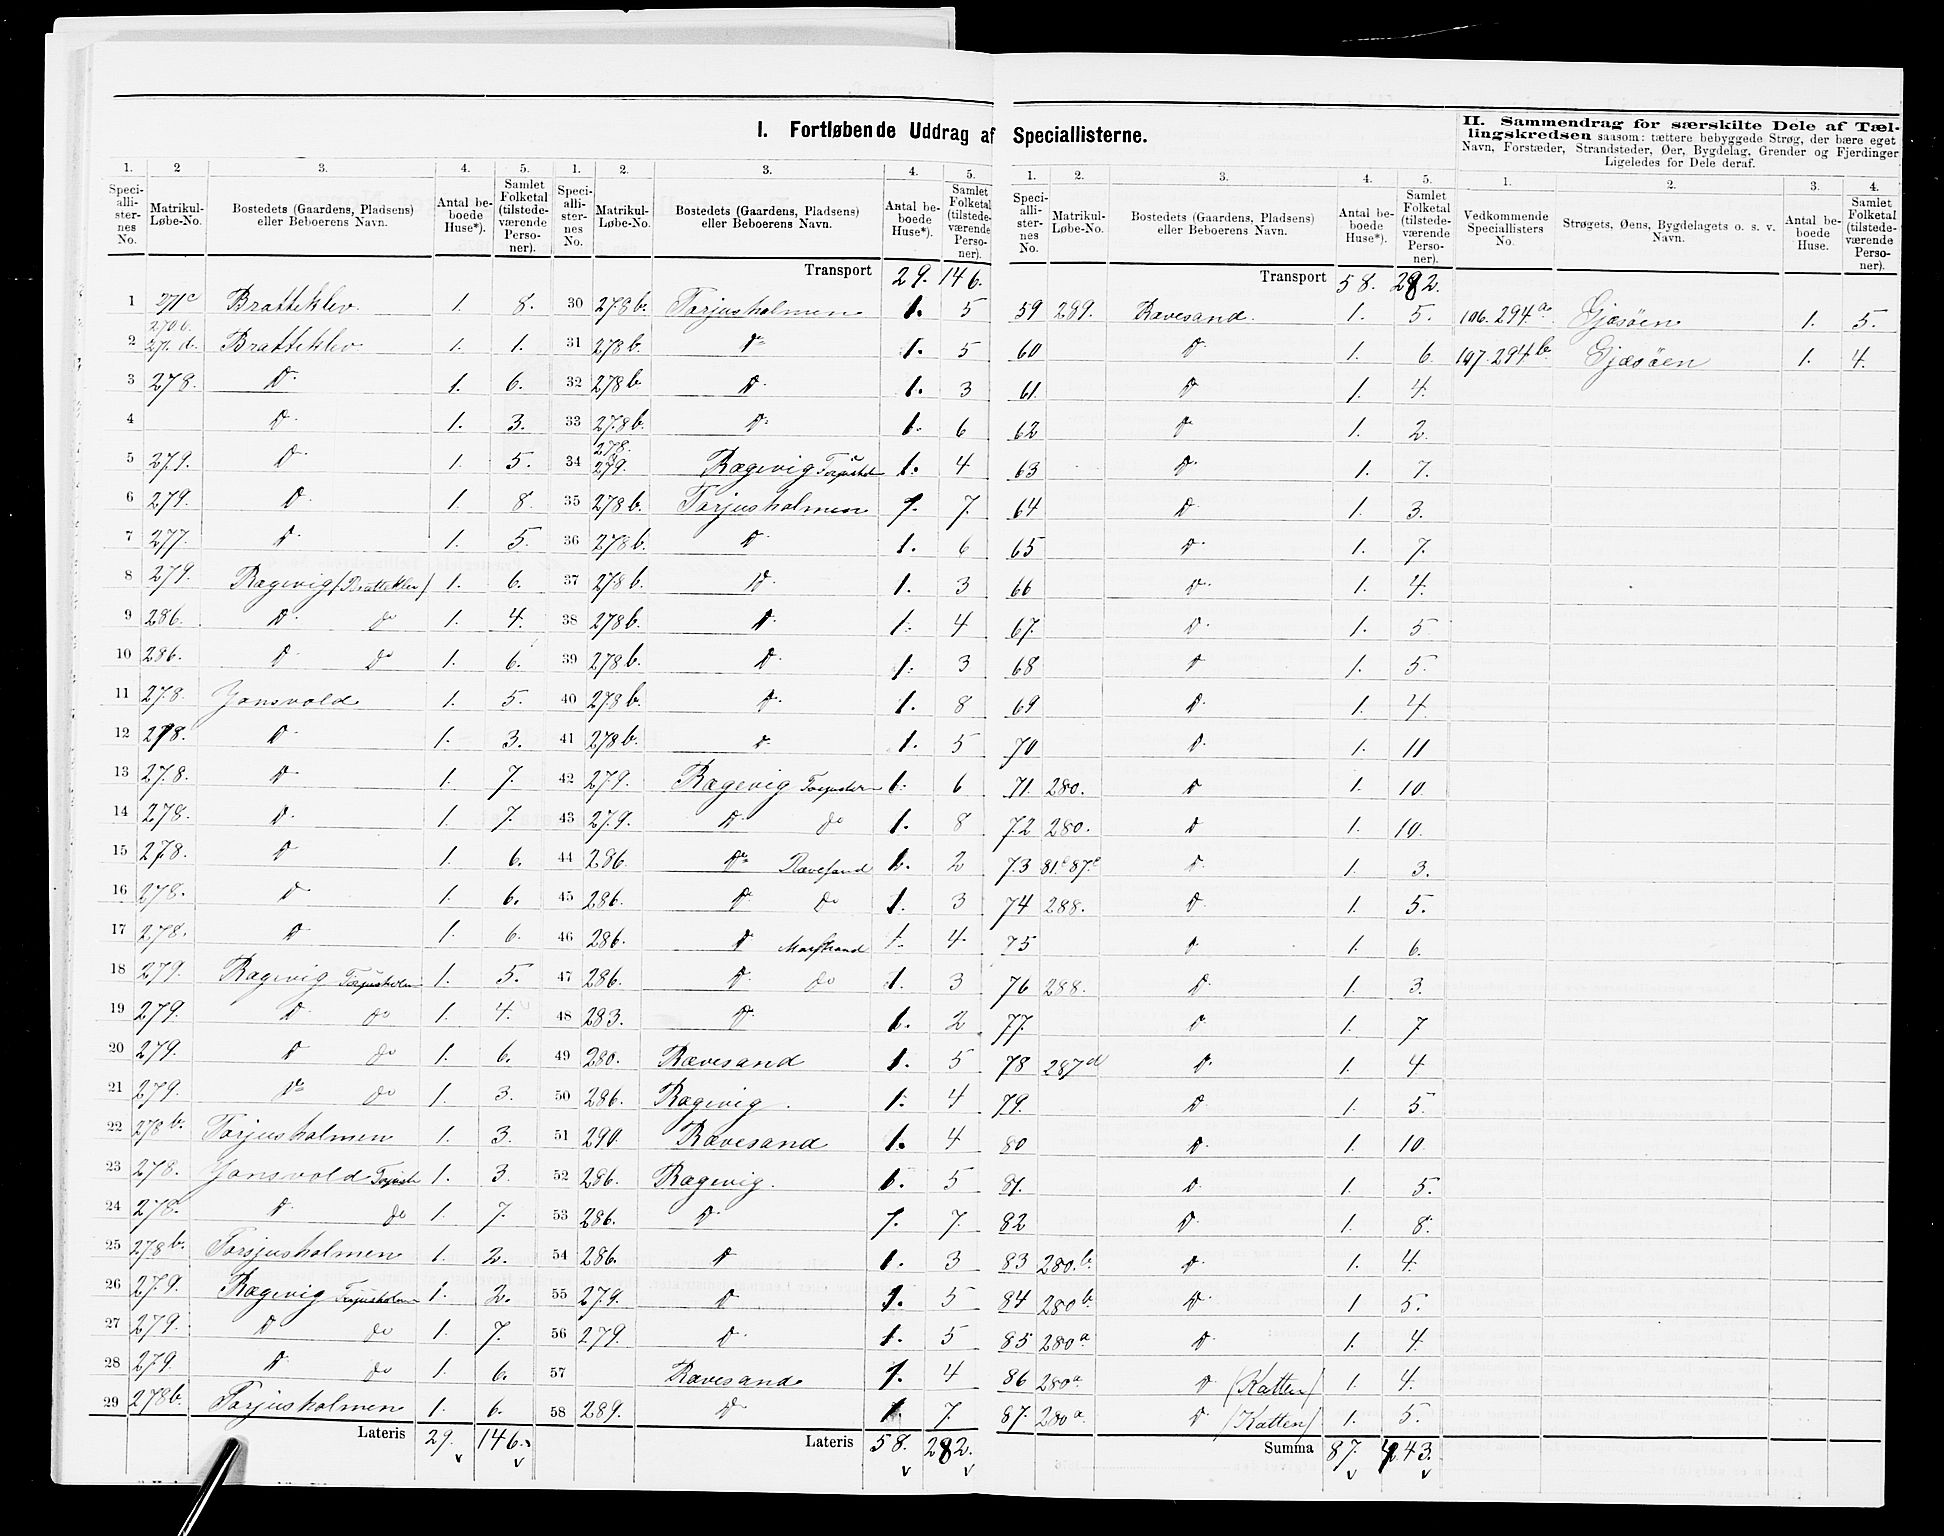 I. Fortløbende Uddrag af Speciallisterne.
II. Sammendrag for særskilte Dele af Tæl-
lingskredsen saasom: tættere bebyggede Strøg, der bære eget
Navn, Forstæder, Strandsteder, Øer, Bygdelag, Grender og Fjerdinger
Ligeledes for Dele deraf.
1. 2 3. 4. 5.
Speciallisternes No. Matrikul-Løbe-No. Bostedets (Gaardens, Pladsens) eller Beboerens Navn. Antal beboede Huse*). Samlet Folketal (tilstedeværende Personer).
1 271c Bratteklev 1. 8.
2 270b. 271.d. Bratteklev 1. 1.
3 278. Do 1. 6.
4 Do 1. 3.
5 279. Do 1. 5.
6 279. Do 1. 8.
7 277. Do 1. 5.
8 279. Rægevig (Bratteklev) 1. 6.
9 286. Do do 1. 4.
10 286. Do Do 1. 6.
11 278. Jonsvold 1. 5.
12 278. Do 1. 3.
13 278. Do 1. 7.
14 278. Do 1. 7.
15 278. Do 1. 6.
16 278. Do 1. 6.
17 278. Do 1. 6.
18 279. Rægevig Torjusholm 1. 5.
19 279. Do do 1. 4.
20 279. Do do 1. 6.
21 279. Do do 1. 3.
22 278b. Torjusholmen 1. 3.
23 278. Jonsvold 1. 3.
24 278. Do do 1. 7.
25 278b. Torsjusholmen 1. 2.
26 279. Rægevig Torjusholm 1. 2.
27 279. Do do 1. 7.
28 279. Do do 1. 6.
29 278b. Torjusholmen 1. 6.
Lateris 29. 146.
1. 2. 3. 4. 5.
Speciallisternes No. Matrikul-Løbe-No. Bostedets (Gaardens, Pladsens) eller Beboerens Navn. Antal beboede Huse*). Samlet Folketal (tilstedeværende Personer).
Transport 29. 146.
30 278b. Torjusholmen 1. 5
31 278b. Do 1. 5
32 278b. Do 1. 3
33 278b. Do 1. 6
34 278. 279. Rægevig 1. 4
35 278b. Torjusholmen 1. 7.
36 278b. Do 1. 6
37 278b. Do 1. 3
38 278b. Do 1. 4
39 278b. Do 1. 3
40 278b. Do 1. 8
41 278b. Do 1. 5
42 279. Rægevig 1. 6
43 279. Do do 1. 8
44 286. Do Rævesand 1. 2
45 286. Do do 1. 3
46 286. Do Marstrand 1. 4.
47 286. Do do 1. 3
48 283. Do 1. 2
49 280. Rævesand 1. 5
50 286. Rægevig. 1. 4
51 290. Rævesand 1. 4
52 286. Rægevig. 1. 5
53 286. Do 1. 7.
54 286. Do 1. 3
55 279. Do 1. 5
56 279. Do 1. 5
57 Rævesand 1. 4
58 289. Do 1. 7.
Lateris 58. 282.
1. 2. 3. 4. 5.
Speciallisternes No. Matrikul-Løbe-No. Bostedets (Gaardens, Pladsens) eller Beboerens Navn. Antal beboede Huse*). Samlet Folketal (tilstedeværende Personer).
Transport 58. 282.
59 289. Rævesand. 1. 5.
60 Do 1. 6.
61. Do 1. 4.
62 Do 1. 2.
63 Do 1. 7.
64 Do 1. 3.
65 Do 1. 7.
66 Do 1. 4.
67. Do 1. 5
68 Do 1. 5.
69 Do 1. 4.
70 Do 1. 11
71. 280. Do 1. 10
72 280. Do 1. 10.
73 81.c 87.c Do 1. 3.
74 288. Do 1. 5.
75 Do 1. 6.
76 288. Do 1. 3.
77. Do 1. 7
78 287d Do 1. 4
79. Do 1. 5.
80 Do 1. 10.
81. Do 1. 5.
82 Do 1. 8.
83 280.b. Do 1. 4.
84 280b. Do 1 5.
85 280a Do 1. 4.
86 280a. Do (Katten) 1. 4.
87. 280a. Do (Katten) 1. 5.
Summa 87. 443.
1. 2. 3. 4.
Vedkommende Speciallisters No. Strøgets, Øens, Bygdelagets o. s. v. Navn. Antal beboede Huse. Samlet Folketal (tilstedeværende Personer).
106. 294a. Gjæsøen 1. 5.
107. 294b. Gjæsøen 1. 4.